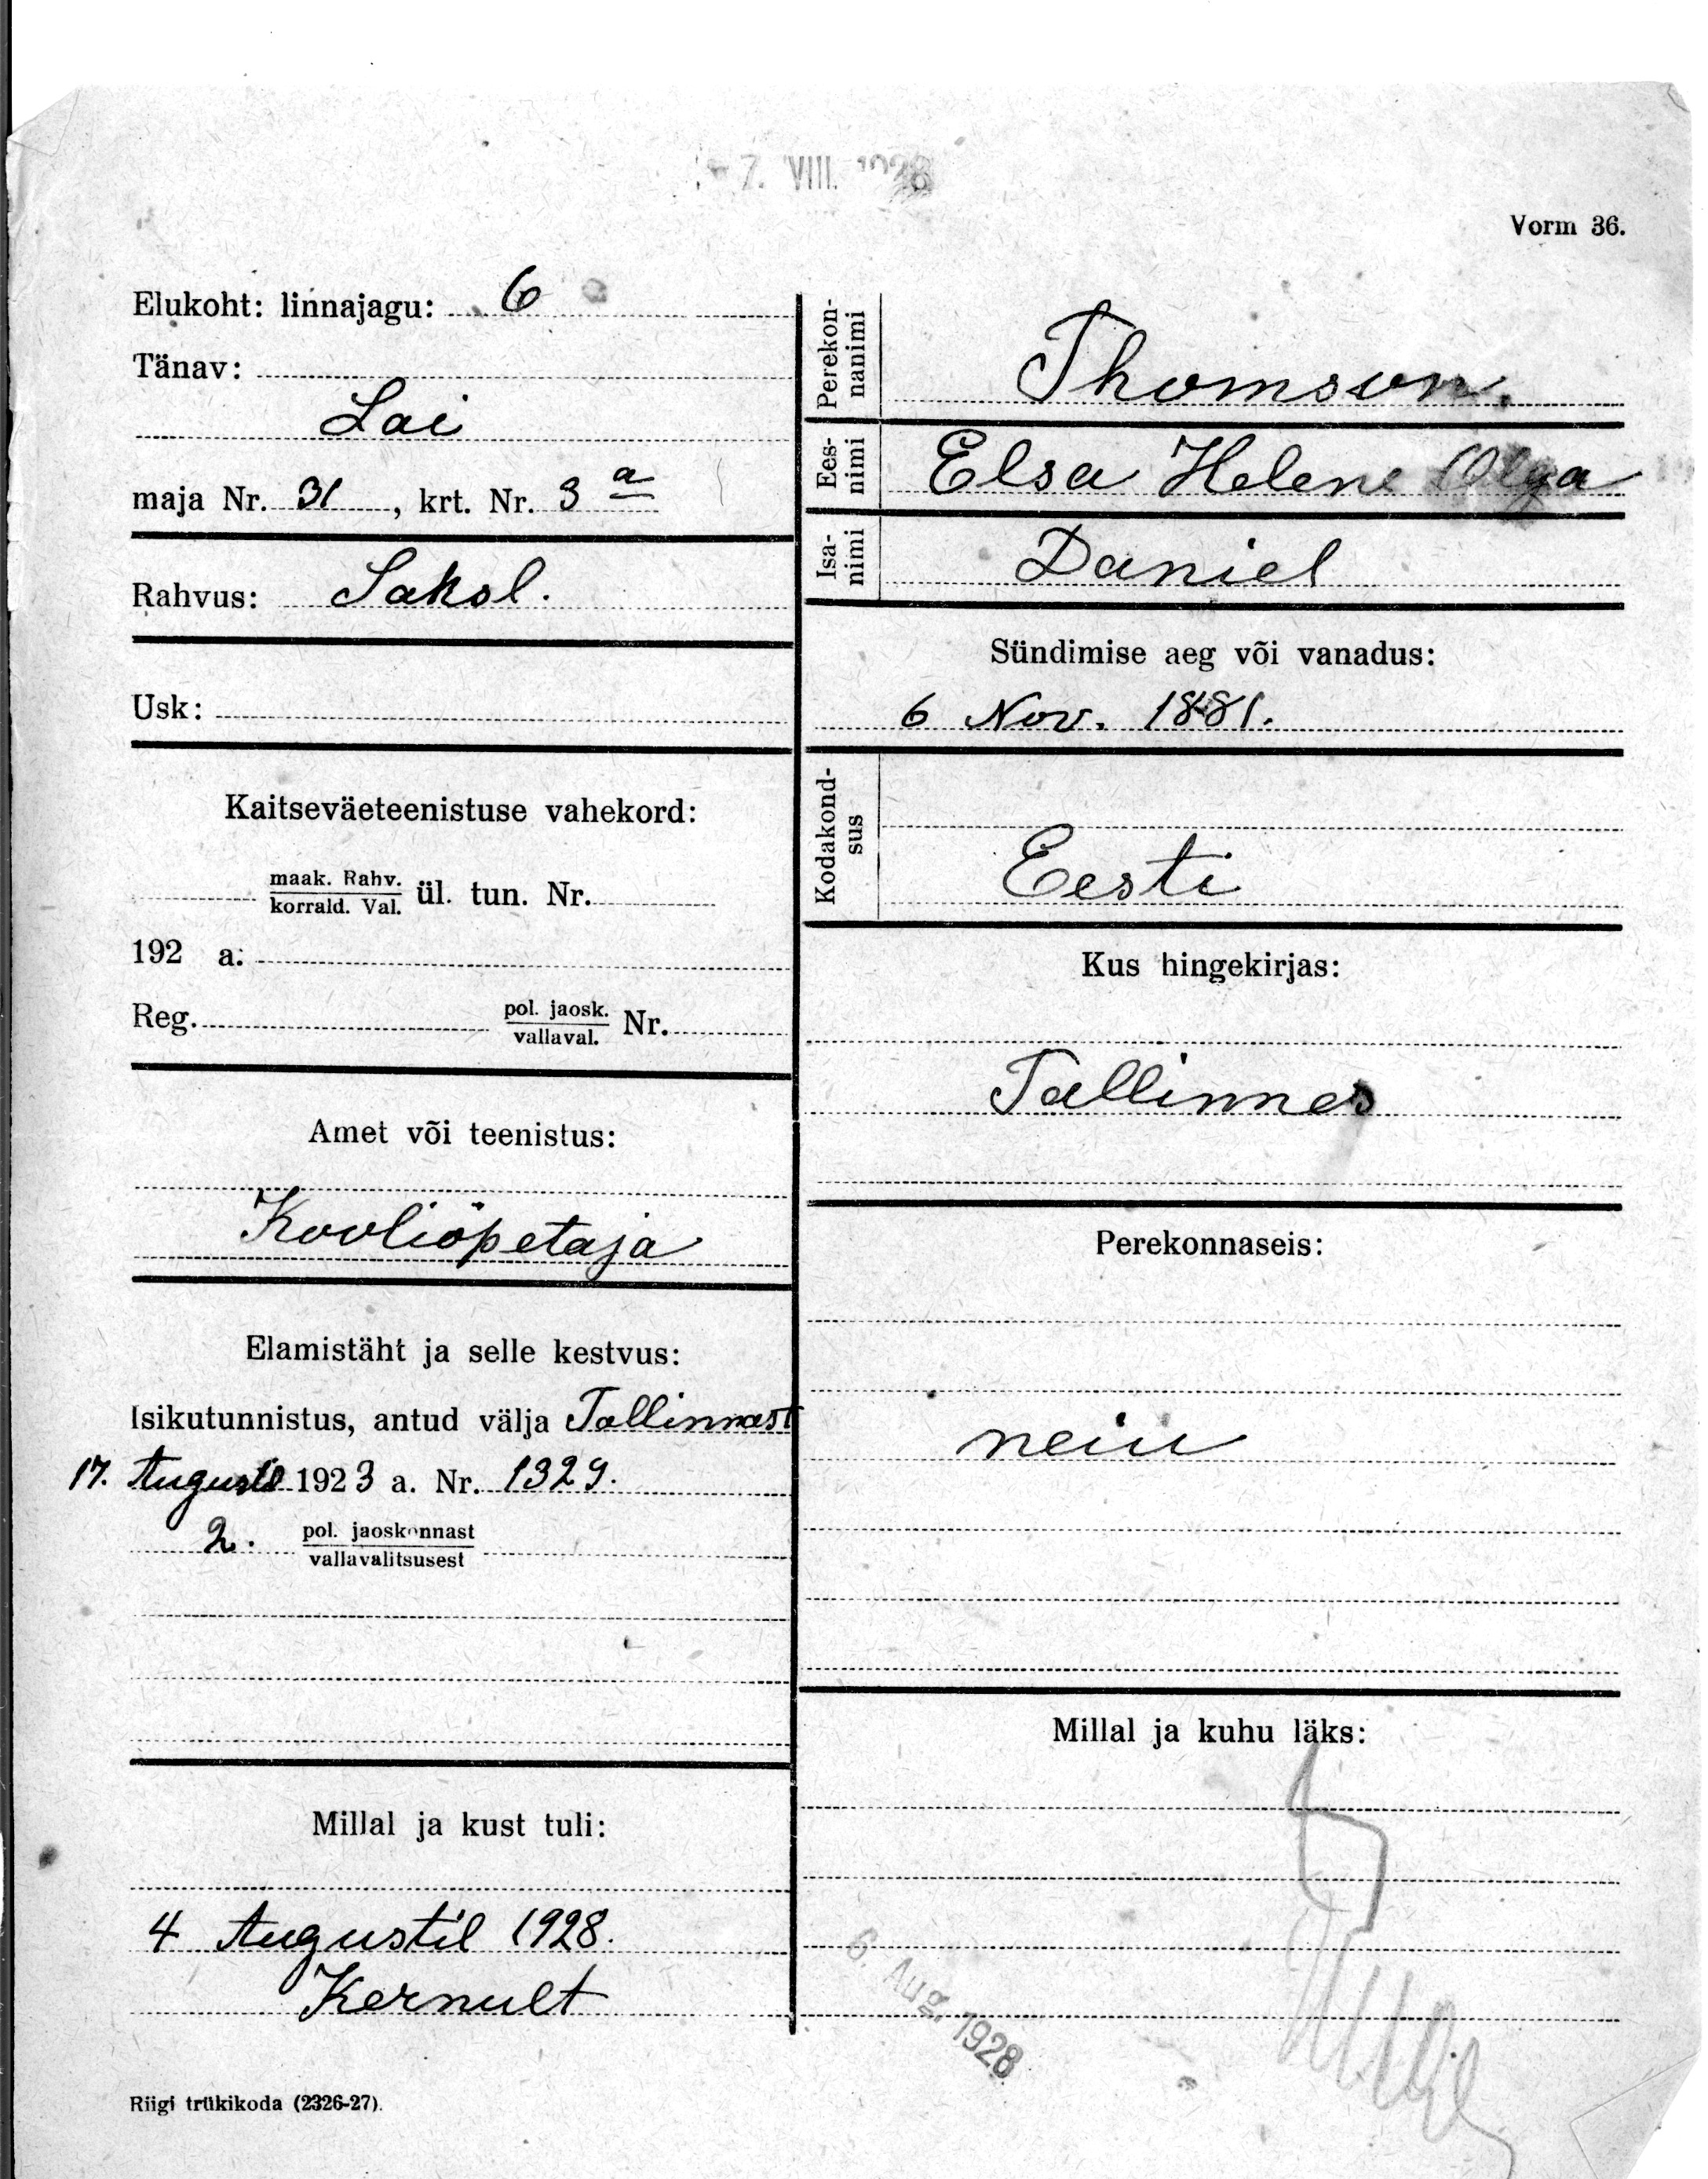 7. VIII. 1928
Vorm 36.
Elukoht: linnajagu: 6
Tänav:
Lai
maja Nr. 31, krt. Nr. 3 a
Rahvus: Saksl.
Usk:
Kaitseväeteenistuse vahekord:
maak. Rahv.
korrald. Val. ül. tun. Nr.
192 a.
Reg. pol. jaosk.
vallaval. Nr.
Amet või teenistus:
Kooliõpetaja
Elamistäht ja selle kestvus:
Isikutunnistus, antud välja Tallinnast
17. Augustil 1923 a. Nr. 1329.
2. pol. jaoskonnast
vallavalitsusest
Millal ja kust tuli:
4 Augustil 1928.
Kernult
Riigi trükikoda (2326-27).
Perekon-
nanimi
Thomson.
Ees-
nimi
Elsa Helene Olga
Isa-
nimi
Daniel
Sündimise aeg või vanadus:
6 Nov. 1881.
Kodakond-
sus
Eesti
Kus hingekirjas:
Tallinnas
Perekonnaseis:
neiu
Millal ja kuhu läks:
6. Aug. 1928